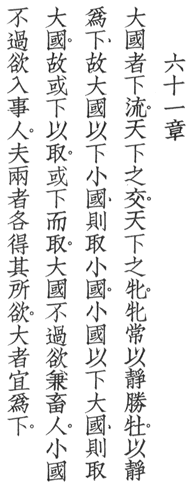 六十一章
大國者下流。天下之交。天下之牝。牝常以靜勝牡以靜
爲下、故大國以下小國、則取小國。小國以下大國、則取
大國。故或下以取。或下而取。大國不過欲兼畜人。小國
不過欲入事人。夫兩者各得其所欲。大者宜爲下。